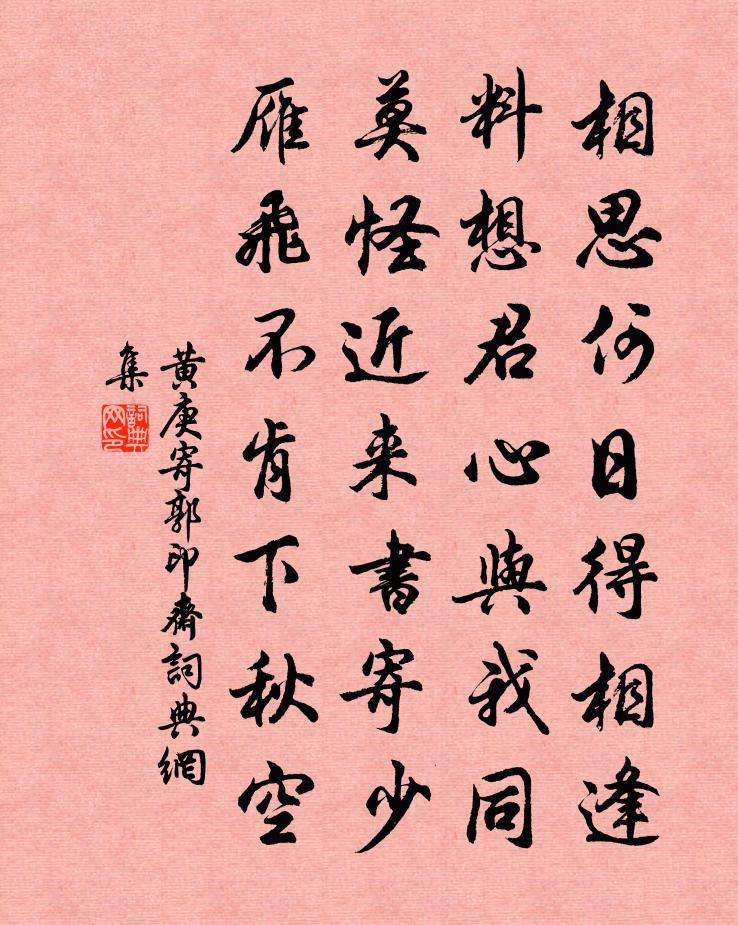 相思何日得相逢
料想君心與我同
莫怪近来書寄少
雁飛不肯下秋空
黄庚寄郭印齋詞典網
集
詞典
网印